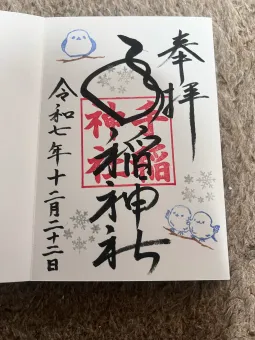 奉拝
手稲神社
手稲
神社
令和七年十二月二十二日